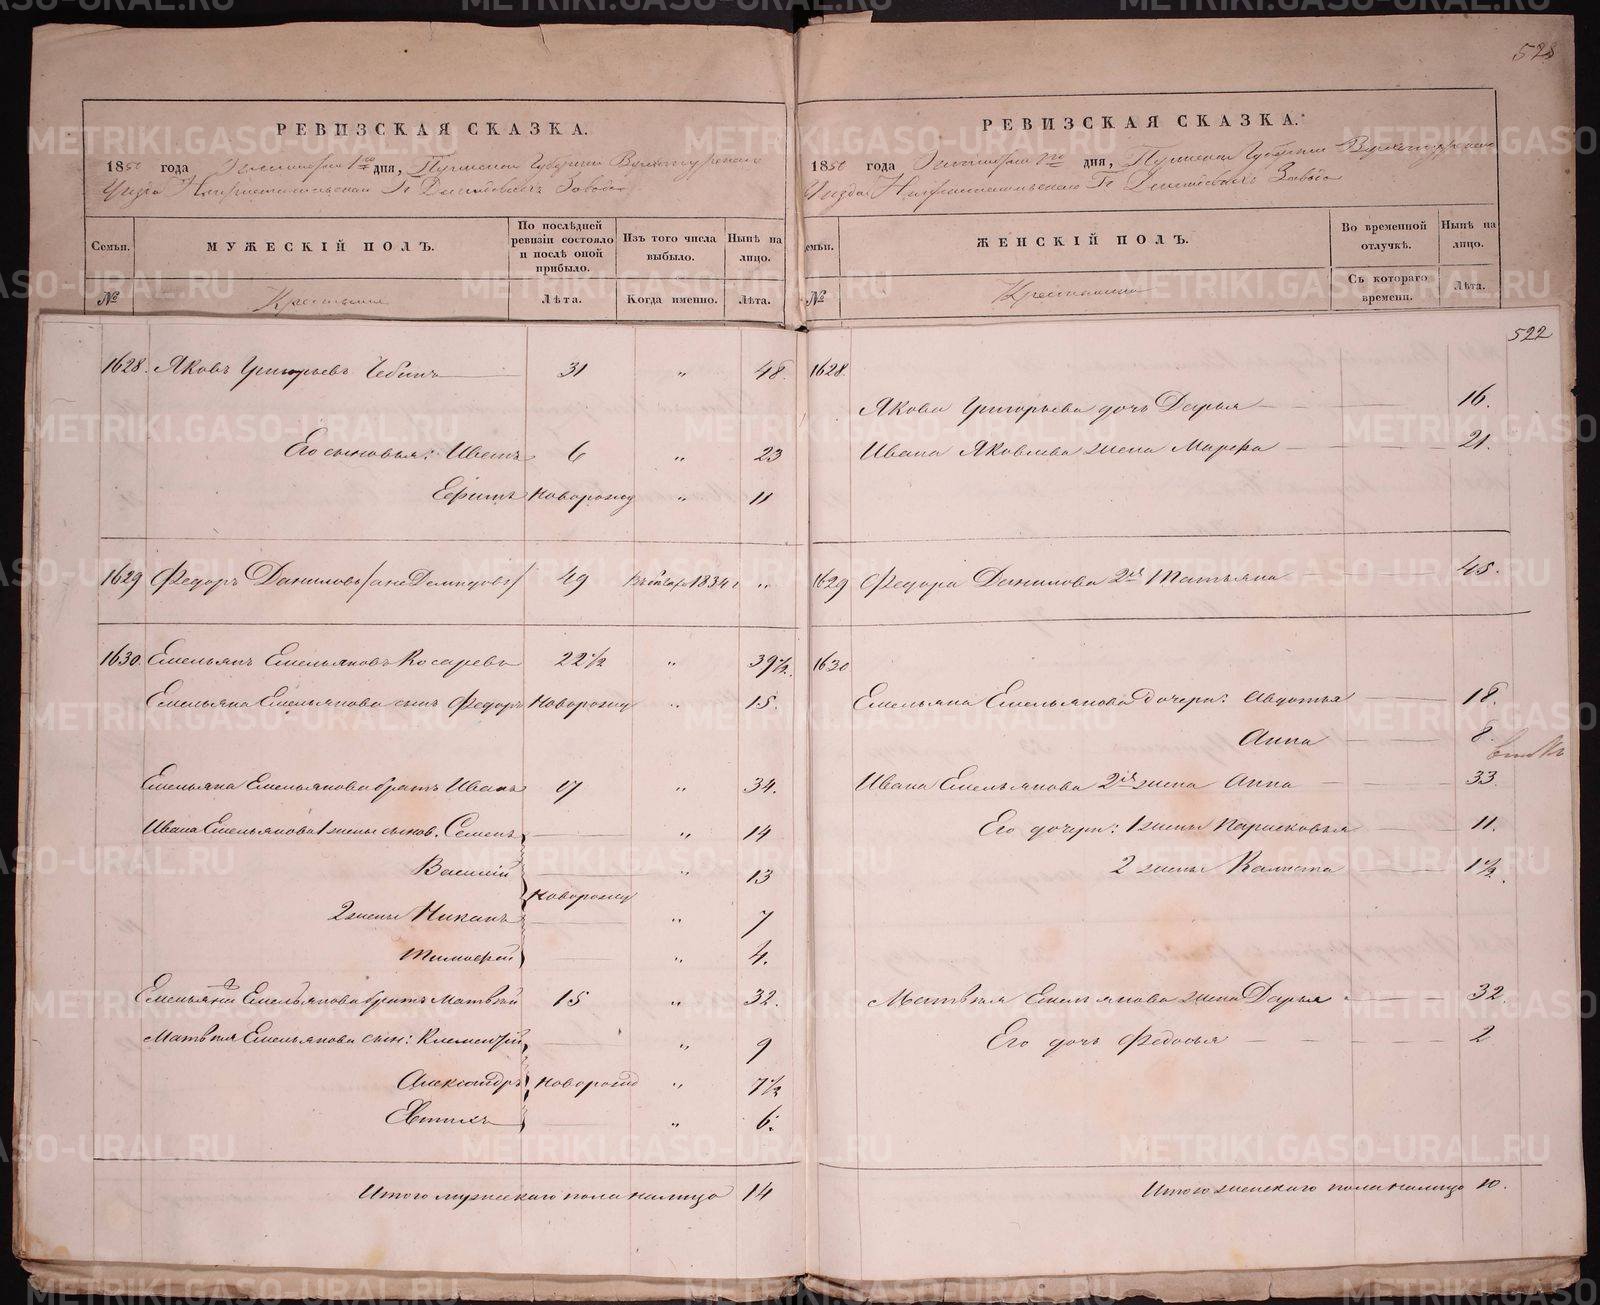 528
РЕВИЗСКАЯ СКАЗКА.
1850 года Сентября 1го дня, Пермской Губернии Верхотурскаго
Уезда Нижнетагильскаго Гг. Демидовыхъ Завода
Семьи.
МУЖЕСКІЙ ПОЛЪ.
По послѣдней ревизіи состояло и послѣ оной прибыло.
Изъ того числа выбыло.
Нынѣ на лицо.
№
Крестьяне
Лѣта.
Когда именно.
Лѣта.
1628. Яковъ Григорьевъ 31 " 48.
Его сыновья: Иванъ 6 " 23
Ефимъ новорожд " 11
1629 Федоръ Даниловъ /онъ Демидовъ/ 49 1834 г "
1630. Емельянъ Емельяновъ Косаревъ 22½ " 39½.
Емельяна Емельянова сынъ Федоръ Новорожд " 15.
Емельяна Емельянова братъ Иванъ 17 " 34.
Ивана Емельянова 1 жены сынов. Семенъ " 14
Василій " 13
новорожд
2 жены Никанъ " 7
Тимофей " 4.
Емельяна Емельянова братъ Матвѣй 15 " 32.
Матвѣя Емельянова сын: Клементій " 9
Александръ новорожд " 7½
Евтихъ " 6.
Итого мужескаго пола налицо 14
РЕВИЗСКАЯ СКАЗКА.
1850 года Сентября 1го дня, Пермской Губернии Верхотурскаго
Уезда Нижнетагильскаго Гг. Демидовыхъ Завода
семьи.
ЖЕНСКІЙ ПОЛЪ.
Во временной отлучкѣ.
Нынѣ на лицо.
№
Крестьянки
Съ котораго времени.
Лѣта.
522
1628.
Якова Григорьева дочь Дарья 16.
Ивана Яковлева жена Марфа 21.
1629 Федора Данилова 2я Татьяна 45.
1630
Емельяна Емельянова дочери: Авдотья 18.
Анна 8.
Ивана Емельянова 2я жена Анна 33.
Его дочери: 1 жены Парасковья 11.
2 жены 1½.
Матвѣя Емельянова жена Дарья 32.
Его дочь Федосья 2
Итого женскаго пола налицо 10.
METRIKI.GASO-URAL.RU